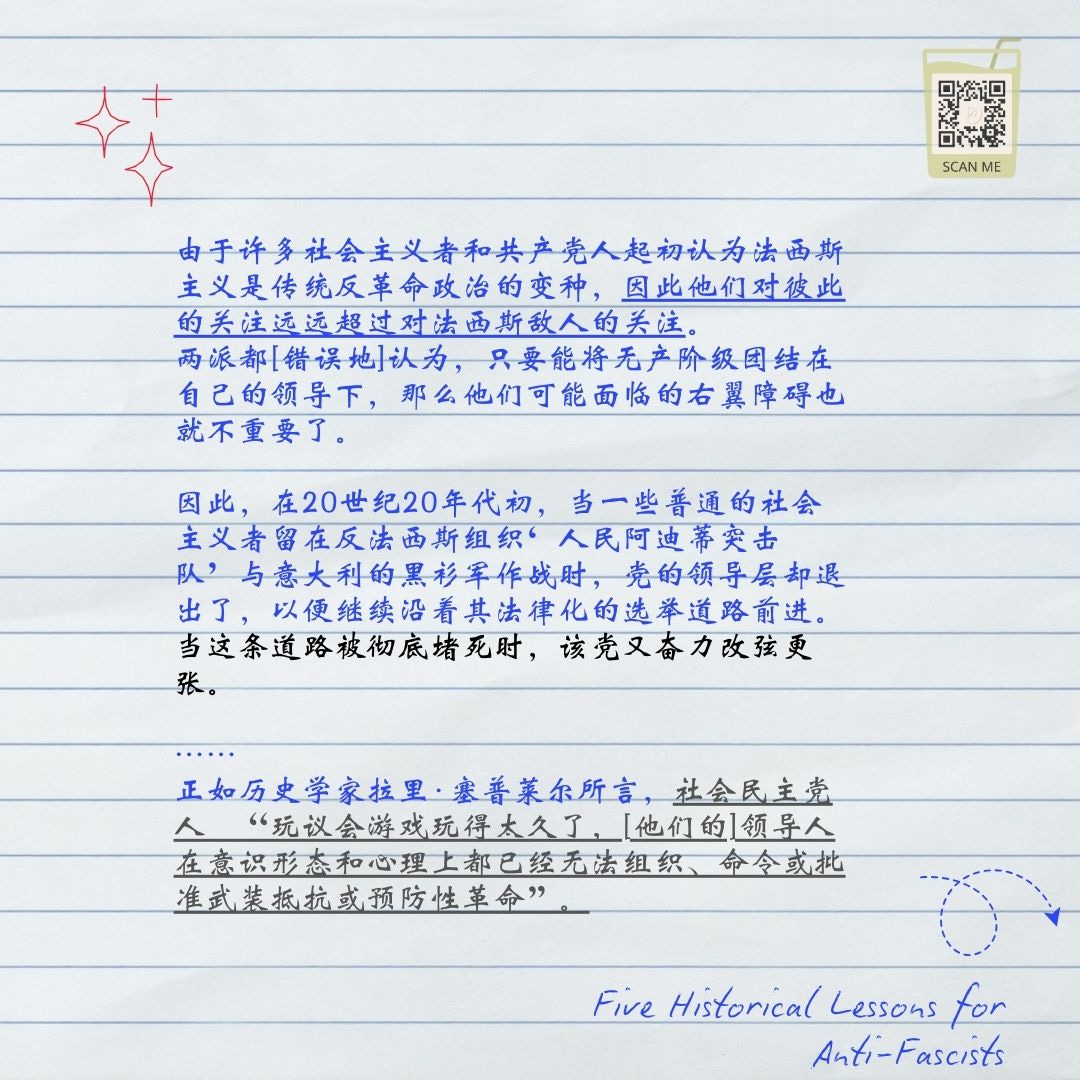 SCAN ME
由于许多社会主义者和共产党人起初认为法西斯
主义是传统反革命政治的变种，因此他们对彼此
的关注远远超过对法西斯敌人的关注。
两派都[错误地]认为，只要能将无产阶级团结在
自己的领导下，那么他们可能面临的右翼障碍也
就不重要了。
因此，在20世纪20年代初，当一些普通的社会
主义者留在反法西斯组织‘人民阿迪蒂突击
队’与意大利的黑衫军作战时，党的领导层却退
出了，以便继续沿着其法律化的选举道路前进。
当这条道路被彻底堵死时，该党又奋力改弦更
张。
……
正如历史学家拉里·塞普莱尔所言，社会民主党
人 “玩议会游戏玩得太久了，[他们的]领导人
在意识形态和心理上都已经无法组织、命令或批
准武装抵抗或预防性革命”。
Five Historical Lessons for
Anti-Fascists